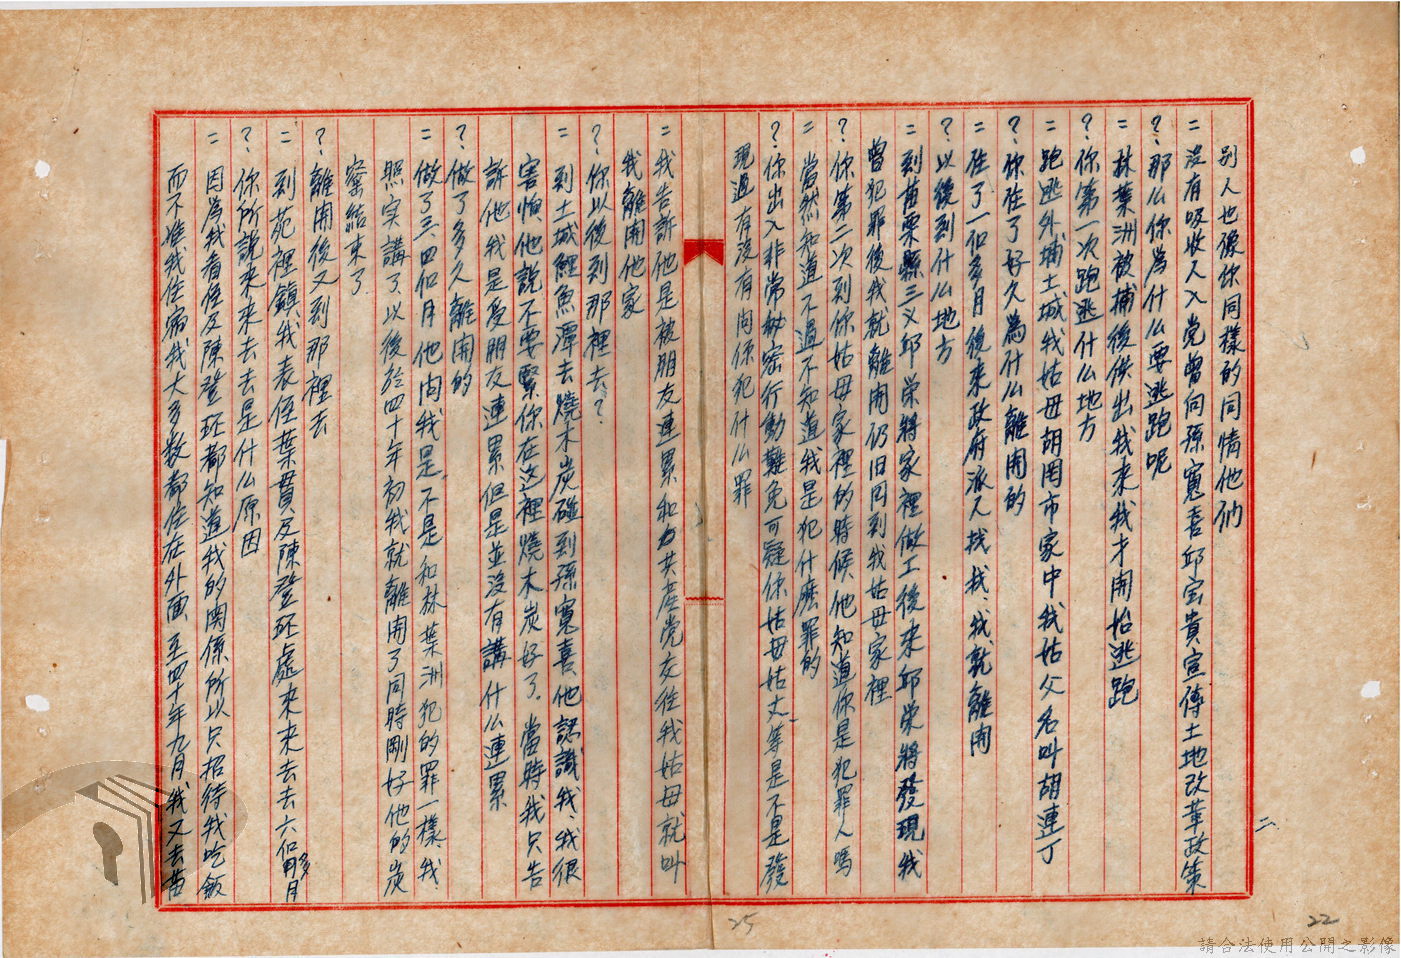 別人也像你同樣的同情他们
= 沒有吸收人入党曾向孫寬喜邱宝貴宣傳土地改革政策
? 那么你為什么要逃跑呢
= 林葉洲被捕後供出我來我才開始逃跑
? 你第一次跑逃什么地方
= 跑逃外埔土城我姑母胡罔市家中我姑父名叫胡連丁
? 你住了好久為什么離開的
= 住了一個多月後來政府派人找我、我就離開
? 以後到什么地方
= 到苗栗縣三义邱荣將家裡做工後來邱荣將發現我
曾犯罪後我就離開仍旧回到我姑母家裡
? 你第二次到你姑母家裡的時候他知道你是犯罪人嗎
= 當然知道不過不知道我是犯什麽罪的
? 你出入非常秘密行動難免可疑你姑母姑丈等是不是發
現過有沒有関係犯什么罪
= 我告訴他是被朋友連累和共產党交往我姑母就叫
我離開他家
? 你以後到那裡去?
= 到土城鯉魚潭去燒木炭碰到孫寬喜他認識我、我很
害怕他說不要緊你在这裡燒木炭好了.當時我只告
訴他我是受朋友連累但是並沒有講什么連累
? 做了多久離開的
= 做了三、四個月他问我是不是和林葉洲犯的罪一樣、我
照实講了以後於四十年初我就離開了同時剛好他的炭
窯結束了
? 離開後又到那裡去
= 到苑裡鎮我表侄葉貫及陳登丕處來來去去六個多月
? 你所說來來去去是什么原因
= 因為我看侄及陳登丕都知道我的関係所以只招待我吃飯
而不准我住宿我大多数都住在外面至四十年九月我又去苗
二
25
22
請合法使用公開之影像